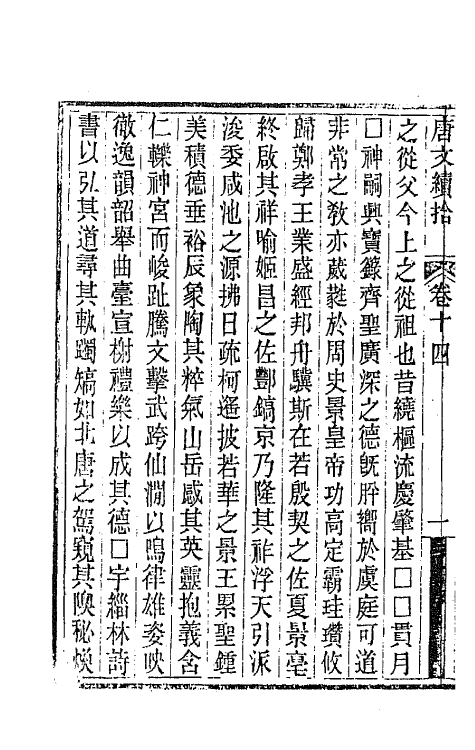 唐文續拾　卷十四　一
之從父今上之從祖也昔繞樞流慶肇基□□貫月
□神嗣興寶籙齊聖廣深之德旣肸嚮於虞庭可道
非常之敎亦葳蕤於周史景皇帝功高定霸珪瓚攸
歸鄭孝王業盛經邦舟驥斯在若殷契之佐夏景亳
終啟其祥喻姬昌之佐酆鎬京乃隆其祚浮天引派
浚委咸池之源拂日疏柯遙披若華之景王累聖鍾
美積德垂裕辰象陶其粹氣山岳感其英靈抱義含
仁轢神宮而峻趾騰文擊武跨仙澗以鳴律雄姿映
徹逸韻韶舉曲臺宣榭禮樂以成其德□宇緇林詩
書以弘其道尋其軌躅犒如北唐之駕窺其隩秘煥